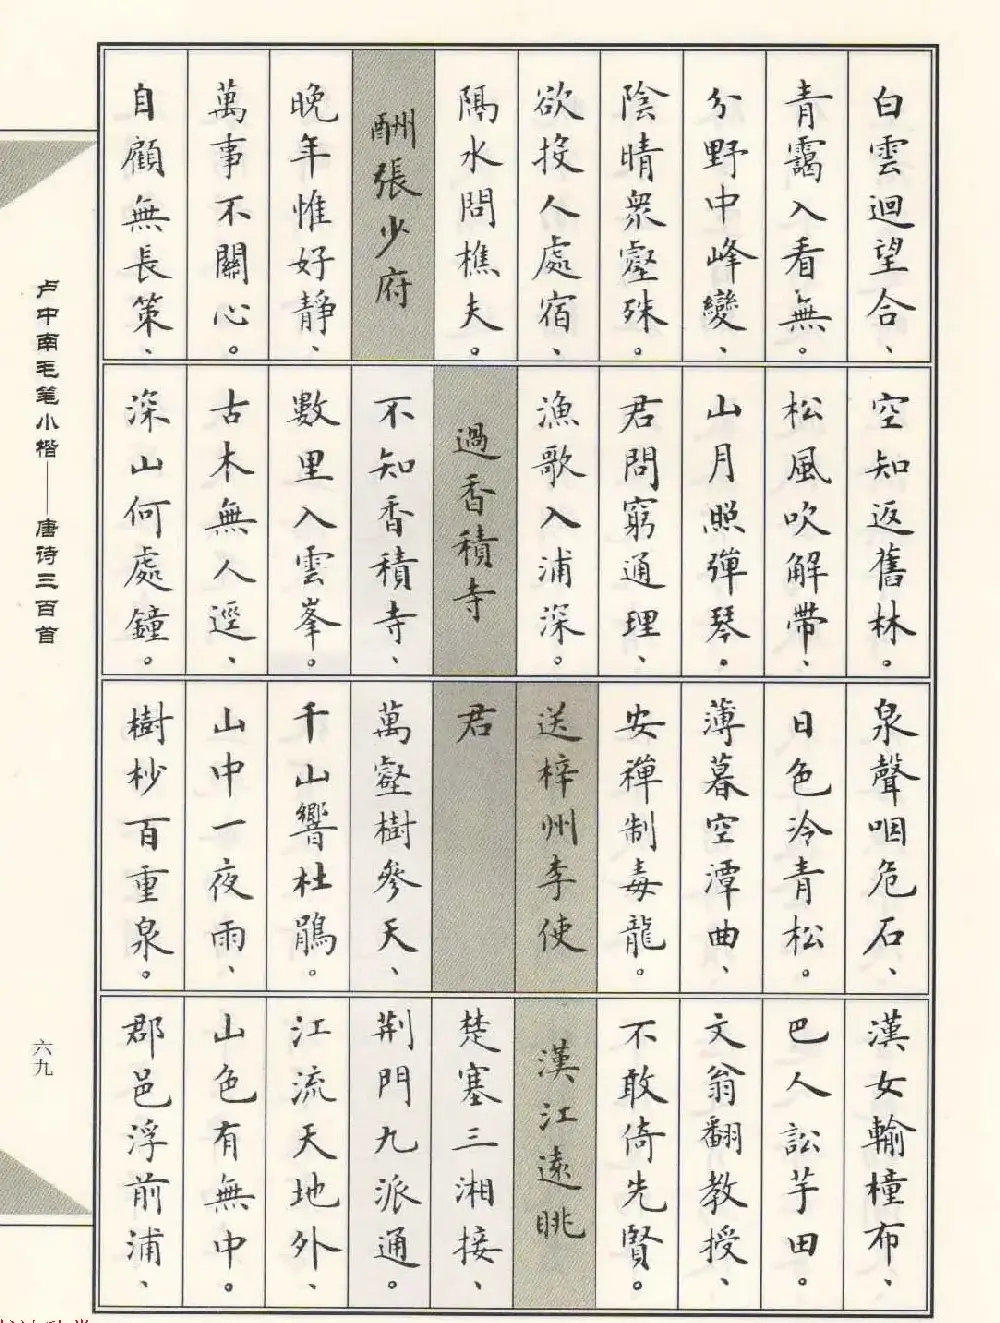 白雲迴望合、
青靄入看無。
分野中峰變、
陰晴衆壑殊。
欲投人處宿、
隔水問樵夫。
酬張少府
晚年惟好靜、
萬事不關心。
自顧無長策、
空知返舊林。
松風吹解帶、
山月照彈琴。
君問窮通理、
漁歌入浦深。
過香積寺
不知香積寺、
數里入雲峯。
古木無人逕、
深山何處鐘。
泉聲咽危石、
日色冷青松。
薄暮空潭曲、
安禪制毒龍。
送梓州李使
君
萬壑樹參天、
千山響杜鵑。
山中一夜雨、
樹杪百重泉。
漢女輸橦布、
巴人訟芋田。
文翁翻教授、
不敢倚先賢。
漢江遠眺
楚塞三湘接、
荆門九派通。
江流天地外、
山色有無中。
郡邑浮前浦、
卢中南毛笔小楷——唐诗三百首
六九